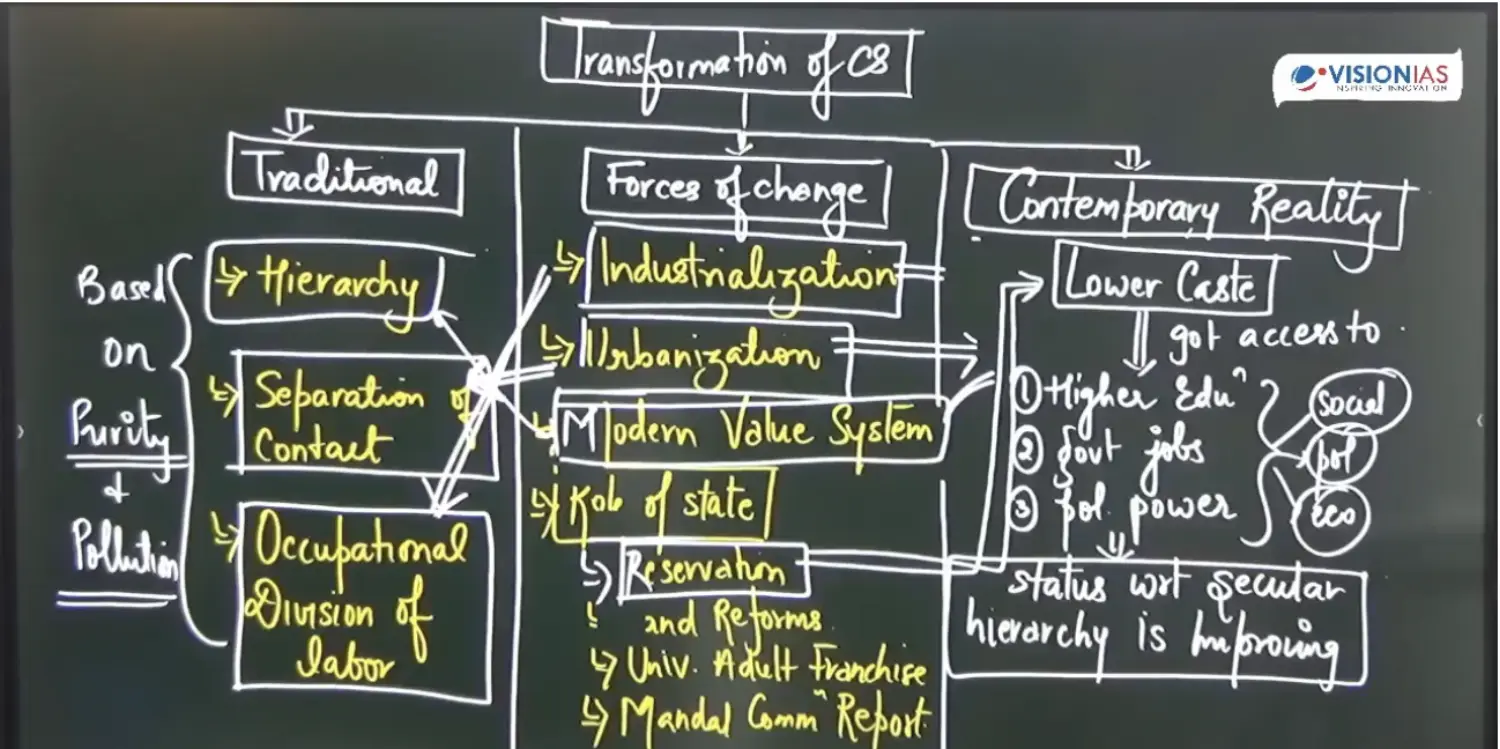 Transformation of CS
VISIONIAS
INSPIRING INNOVATION
Traditional
Based
on
Purity
+
Pollution
Hierarchy
Separation of
Contact
Occupational
Division of
labor
Forces of change
Industrialization
Urbanization
Modern Value System
of state
Reservation
and Reforms
Univ. Adult Franchise
Mandal Commⁿ Report.
Contemporary Reality
Lower Caste
got access to
① Higher Eduⁿ
② govt jobs
③ pol. power
social
pol
eco
status wrt secular
hierarchy is improving